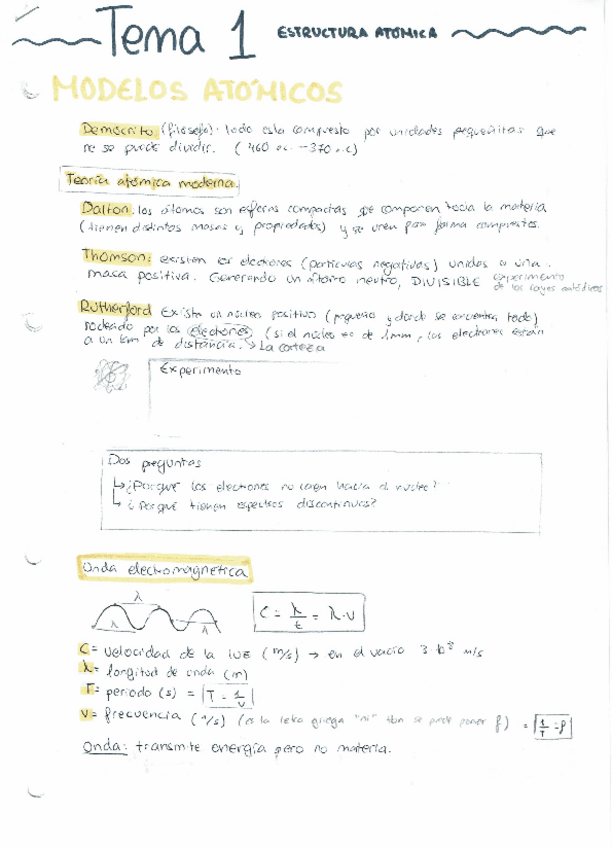 Tema 1 ESTRUCTURA ATÓMICA
MODELOS ATÓMICOS
Demócrito: (filósofo): todo esta compuesto por unidades pequeñitas que
no se puede dividir. (460 a.c. - 370 a.c)
Teoría atómica moderna.
Dalton: los átomos son esferas compactas que componen toda la materia
(tienen distintas masas y propiedades) y se unen para formar compuestos.
Thomson: existen los electrones (partículas negativas) unidas a una
masa positiva. Generando un átomo neutro, DIVISIBLE experimento
de los rayos catódicos
Rutherford Existe un núcleo positivo (pequeño y donde se encuentra todo)
rodeado por los electrones (si el núcleo es de 1mm, los electrones están
a un km de distancia. → La corteza
Experimento
Dos preguntas
↳ ¿Porqué los electrones no caen hacia el núcleo?
↳ ¿porqué tienen espectros discontinuos?
Onda electromagnética
λ
λ λ
C = λ/t = λ·ν
C = velocidad de la luz (m/s) → en el vacío 3·10⁸ m/s
λ = longitud de onda (m)
T = periodo (s) = T = 1/ν
ν = frecuencia (1/s) (es la letra griega "ni" tbn se puede poner f) = 1/T = f
Onda: transmite energía pero no materia.